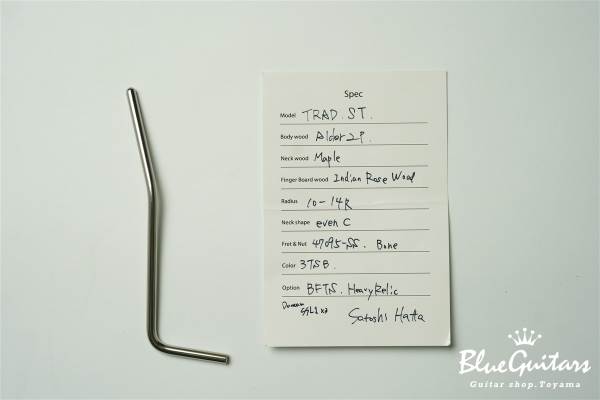 Spec
Model TRAD. ST.
Body wood Alder 2P.
Neck wood Maple
Finger Board wood Indian Rose Wood
Radius 10-14R
Neck shape even C
Fret & Nut 47095-SS. Bone
Color 3TSB.
Option BFTS. Heavy Relic
SSL1 x3
Satoshi Hatta
BlueGuitars
Guitar shop.Toyama